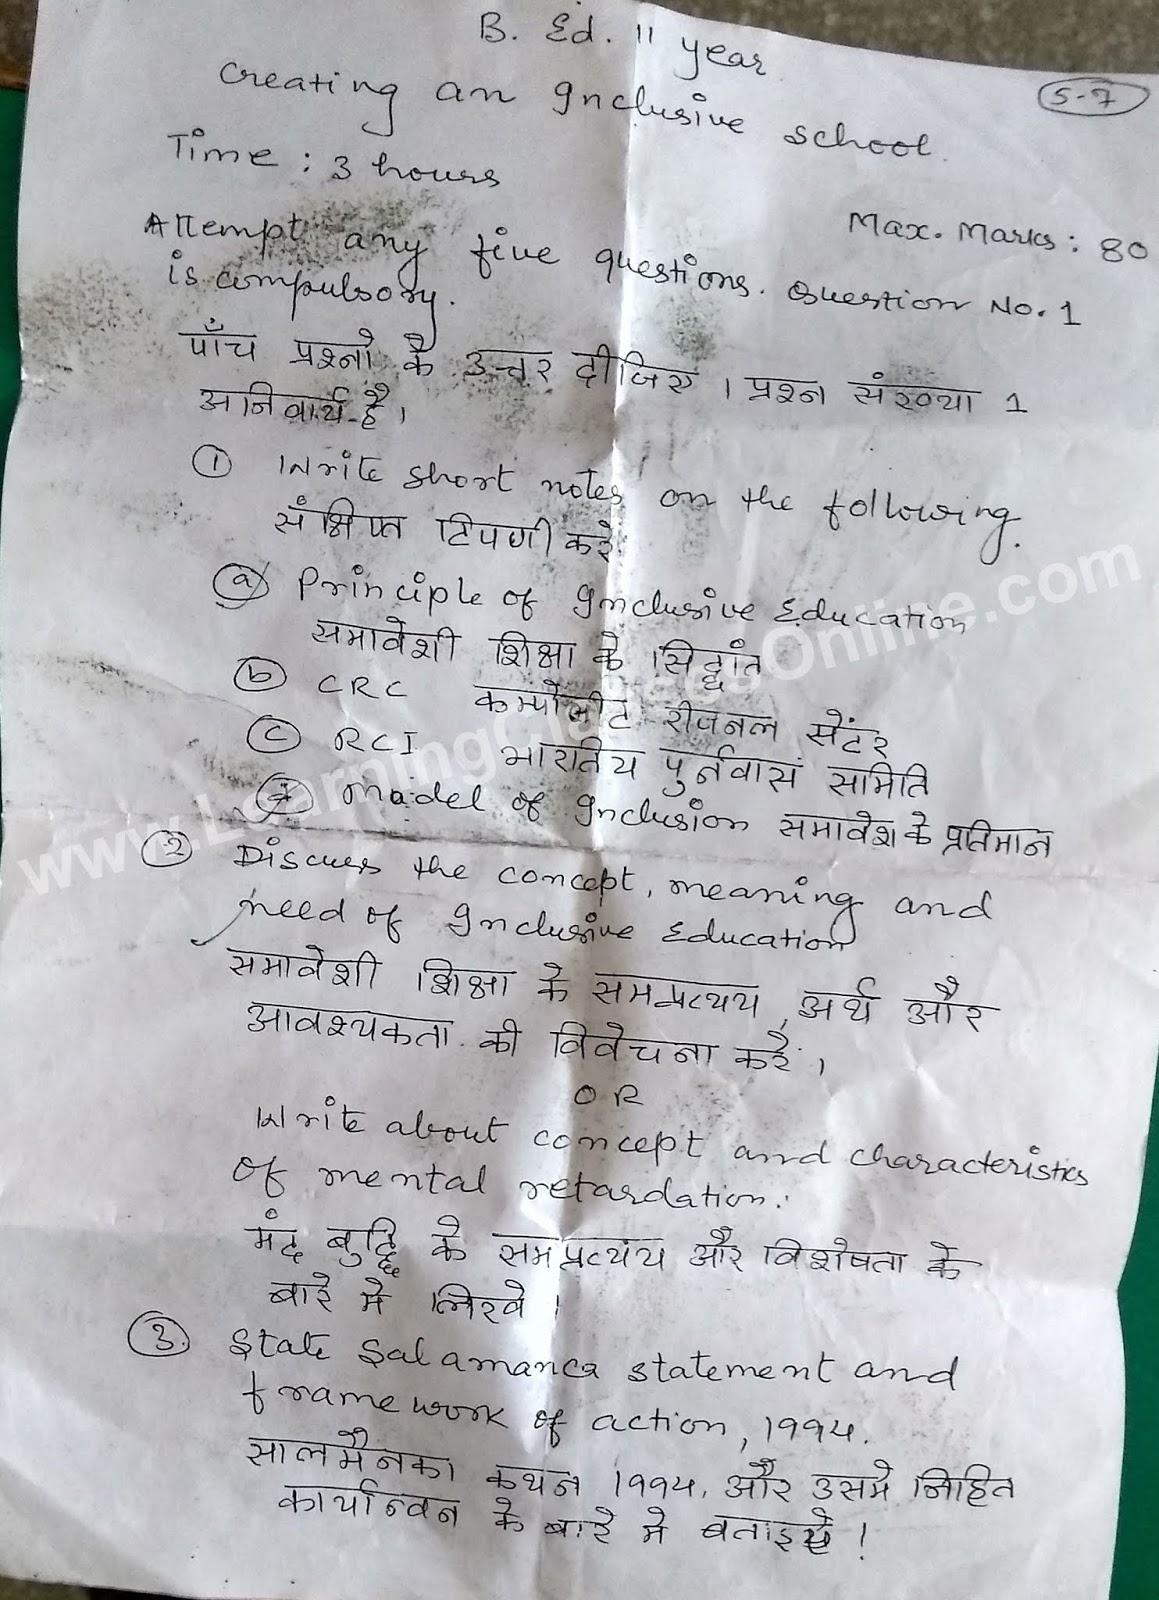 B. Ed. II year
Creating an Inclusive School.
S-7
Time : 3 hours
Max. Marks : 80
Attempt any five questions. Question No. 1
is compulsory.
पाँच प्रश्नो के उत्तर दीजिए । प्रश्न संख्या 1
अनिवार्य है।
① Write short notes on the following.
संक्षिप्त टिपणी करे
ⓐ Principle of Inclusive Education
समावेशी शिक्षा के सिद्धांत
ⓑ CRC कम्पोजीट रीजनल सेंटर
ⓒ RCI भारतिय पुर्नवास समिति
ⓓ Model of Inclusion समावेश के प्रतिमान
② Discuss the concept, meaning and
need of Inclusive Education
समावेशी शिक्षा के समप्रत्यय, अर्थ और
आवश्यकता की विवेचना करें ।
OR
Write about concept and characteristics
of mental retardation.
मंद बुद्धि के समप्रत्यय और विशेषता के
बारे मे लिखे ।
③ State Salamanca statement and
framework of action, 1994.
सालमैनका कथन 1994, और उसमे निहित
कार्यान्वन के बारे मे बताइये !
www.LearningClassesOnline.com